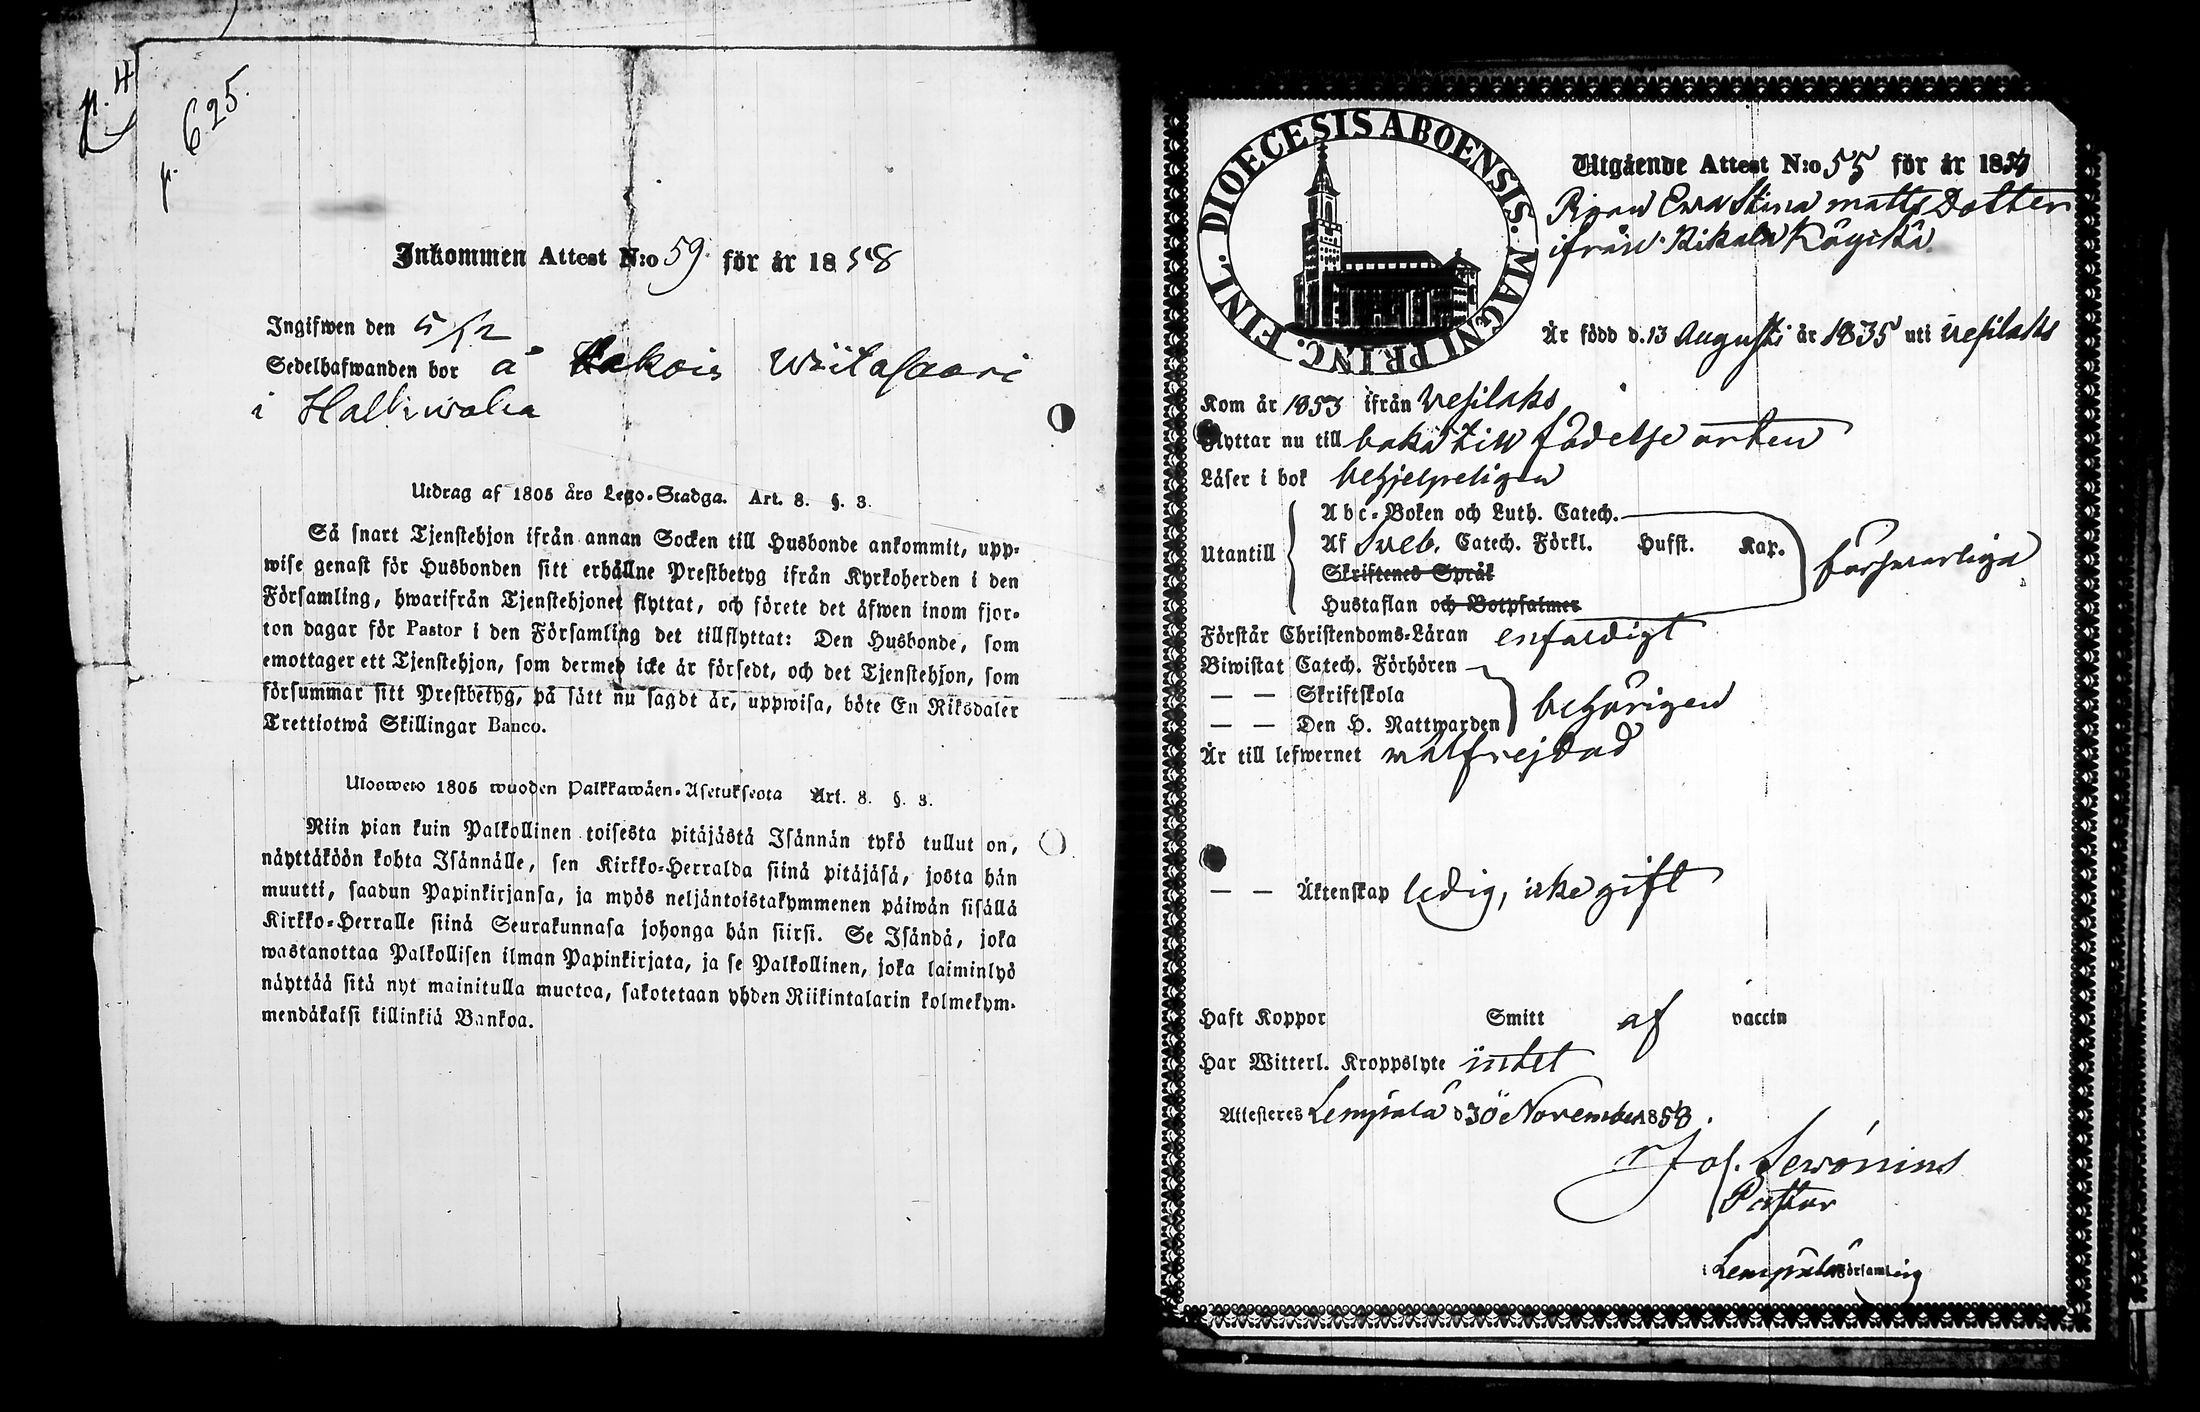 p. 4
p. 625.
Inkommen Attest N:o 59 för år 1858
Ingifwen den 5/12
Sedelhafwanden bor å Wiitasaari
i Halkiwaha
Utdrag af 1805 års Lego-Stadga. Art. 8. §. 3.
Så snart Tjenstehjon ifrån annan Socken till Husbonde ankommit, upp-
wise genast för Husbonden sitt erhållne Prestbetyg ifrån Kyrkoherden i den
Församling, hwarifrån Tjenstehjonet flyttat, och förete det äfwen inom fjor-
ton dagar för Pastor i den Församling det tillflyttat: Den Husbonde, som
emottager ett Tjenstehjon, som dermed icke är försedt, och det Tjenstehjon, som
försummar sitt Prestbetyg, på sätt nu sagdt är, uppwisa, böte En Riksdaler
Trettiotwå Skillingar Banco.
Ulosweto 1805 wuoden Palkkawäen-Asetuksesta Art. 8. §. 3.
Niin pian kuin Palkollinen toisesta pitäjästä Isännän tykö tullut on,
näyttäköön kohta Isännälle, sen Kirkko-Herralda siinä pitäjäsä, josta hän
muutti, saadun Papinkirjansa, ja myös neljäntoistakymmenen päiwän sisällä
Kirkko-Herralle siinä Seurakunnasa johonga hän siirsi. Se Isändä, joka
wastanottaa Palkollisen ilman Papinkirjata, ja se Palkollinen, joka laiminlyö
näyttää sitä nyt mainitulla muotoa, sakotetaan yhden Riikintalarin kolmekym-
mendäkaksi killinkiä Bankoa.
DIOECESIS ABOENSIS. MAGNI PRINC. FINL.
Utgående Attest N:o 55 för år 1858
Pigan Ewa Stina Matts Dotter
ifrån Kikala
Är född d. 13 Augusti år 1835 uti Vesilaks
Kom år 1853 ifrån Vesilaks
Flyttar nu till baka till födelse orten
Läser i bok behjelpeligen
Utantill
Abc-Boken och Luth. Catech.
Af Sveb. Catech. Förkl. Husft. Kap.
Skriftenes Språk
Hustaflan och Botpsalmer
försvarliga
Förstår Christendoms-Läran enfaldigt
Biwistat Catech. Förhören
— — Skriftskola
— — Den H. Nattwarden
behörigen
Är till lefwernet wälfrejdad
— — Äktenskap ledig, icke gift
Haft Koppor Smitt af vaccin
Har Witterl. Kroppslyte intet
Attesteras Lempälä d 30 November 1858.
Jos. Serwónius
Pastor
i Lempälä Församling